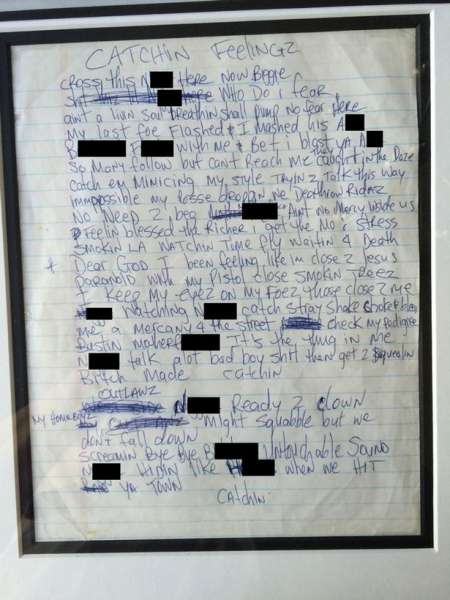 CATCHIN FEELINGZ
cross this N Here Now Before
Shit Here Who Do i fear
aint a livin soul breathin shall pump No fear Here
My last foe Flashed & I mashed his A
B F With me & Bet i blast ya A
So Many follow but cant Reach me they caught in the Daze
catch em Mimicing my style TRYIN 2 Talk this way
impossible my posse droppin we Deathrow Ridaz
No Need 2 beg Aint no Mercy inside us
Feelin blessed the Richer i get the No's Stress
Smokin LA Watchin Time fly Waitin 4 Death
Dear God I been feeling like im close 2 Jesus
paranoid with my Pistol close Smokin Treez
I Keep my eyez on my Foez those close 2 me
Watching N catch stray shake
me a Mercany 4 the street check my Pedigree
Bustin motherf It's the thug in me
N talk alot bad boy shit then get 2 squealin
Bitch Made catchin
OUTLAWZ
N Ready 2 clown
My Homeboyz might squabble but we
dont fall down
screamin bye bye B Untouchable Sound
N Hidin like when we HIT
Ya Town
Catchin